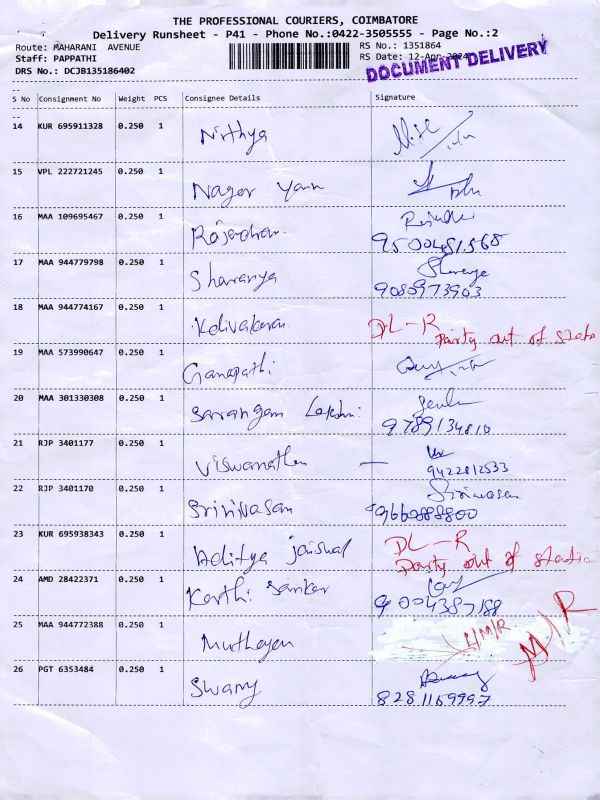 THE PROFESSIONAL COURIERS, COIMBATORE
Delivery Runsheet - P41 - Phone No.:0422-3505555 - Page No.:2
Route: MAHARANI AVENUE RS No.: 1351864
Staff: PAPPATHI RS Date: 12-Apr-2024
DRS No.: DCJB135186402 DOCUMENT DELIVERY
S No Consignment No Weight PCS Consignee Details Signature
14 KUR 695911328 0.250 1 Nithya
15 VPL 222721245 0.250 1 Nagor
16 MAA 109695467 0.250 1 Rajendran
9500481568
17 MAA 944779798 0.250 1 Sharanya
9080973903
18 MAA 944774167 0.250 1 Kdivakaran DL-R
Party out of
19 MAA 573990647 0.250 1 Ganapathi
20 MAA 301330308 0.250 1 Sarangam Lakshmi
9789134810
21 RJP 3401177 0.250 1 Viswanathan
9422812533
22 RJP 3401170 0.250 1 Srinivasan Srinivasan
9660888800
23 KUR 695938343 0.250 1 Aditya Jaiswal DL-R
Party out of station
24 AMD 28422371 0.250 1 Karthi Sankar
9004387188
25 MAA 944772388 0.250 1 Muthayen M/R
26 PGT 6353484 0.250 1 Swamy
8281169997